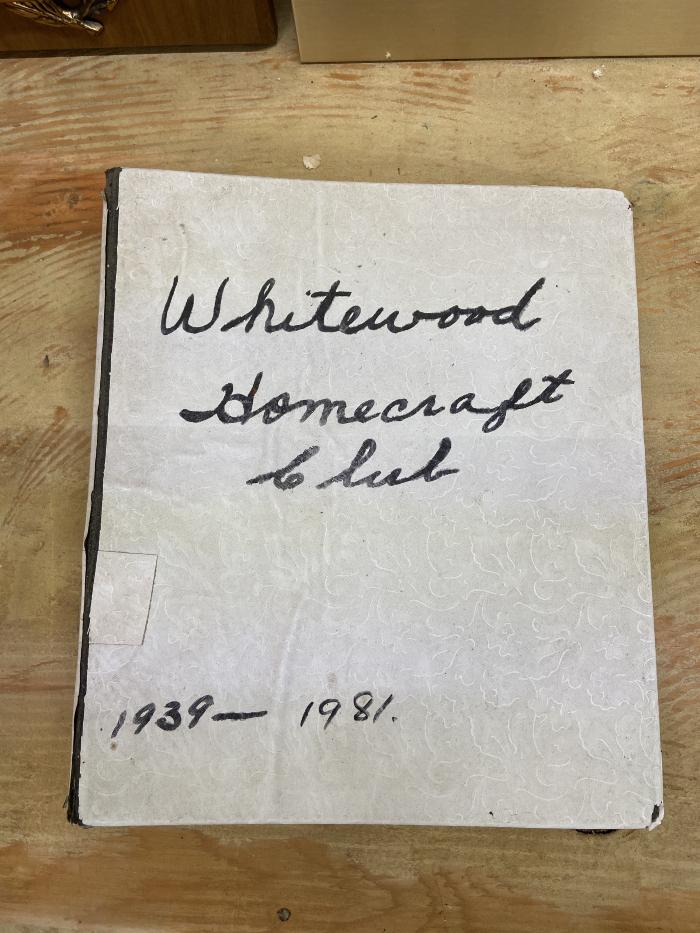 Whitewood
Homecraft
Club
1939— 1981.